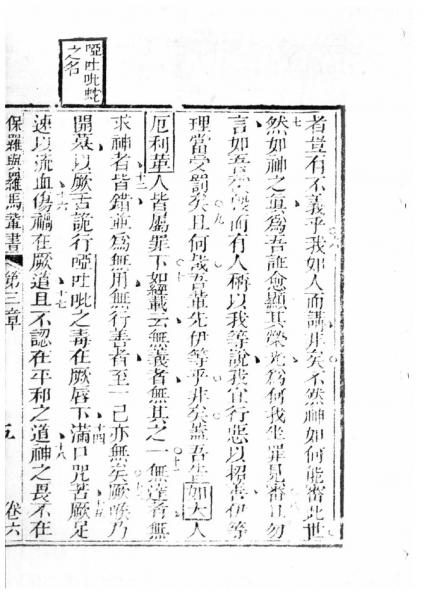 啞吐吡蛇
之名
者豈有不義乎我如人而講非矣不然神如何能審此世
然如神之真為吾誑愈顯其榮光為何我坐罪見審且勿
言如吾毀而有人稱以我等說我宜行惡以招善伊等
理當受罰矣且何哉吾輩先伊等乎非矣蓋吾如大人
厄利革人皆屬罪下如經載云無義者無其之一無達者無
求神者皆錯並為無用無行善者至一己亦無矣厥喉乃
開墓以厥舌詭行啞吐吡之毒在厥唇下滿口咒苦厥足
速以流血傷禍在厥道且不認在平和之道神之畏不在
保羅與羅馬輩書 第三章 五 卷六